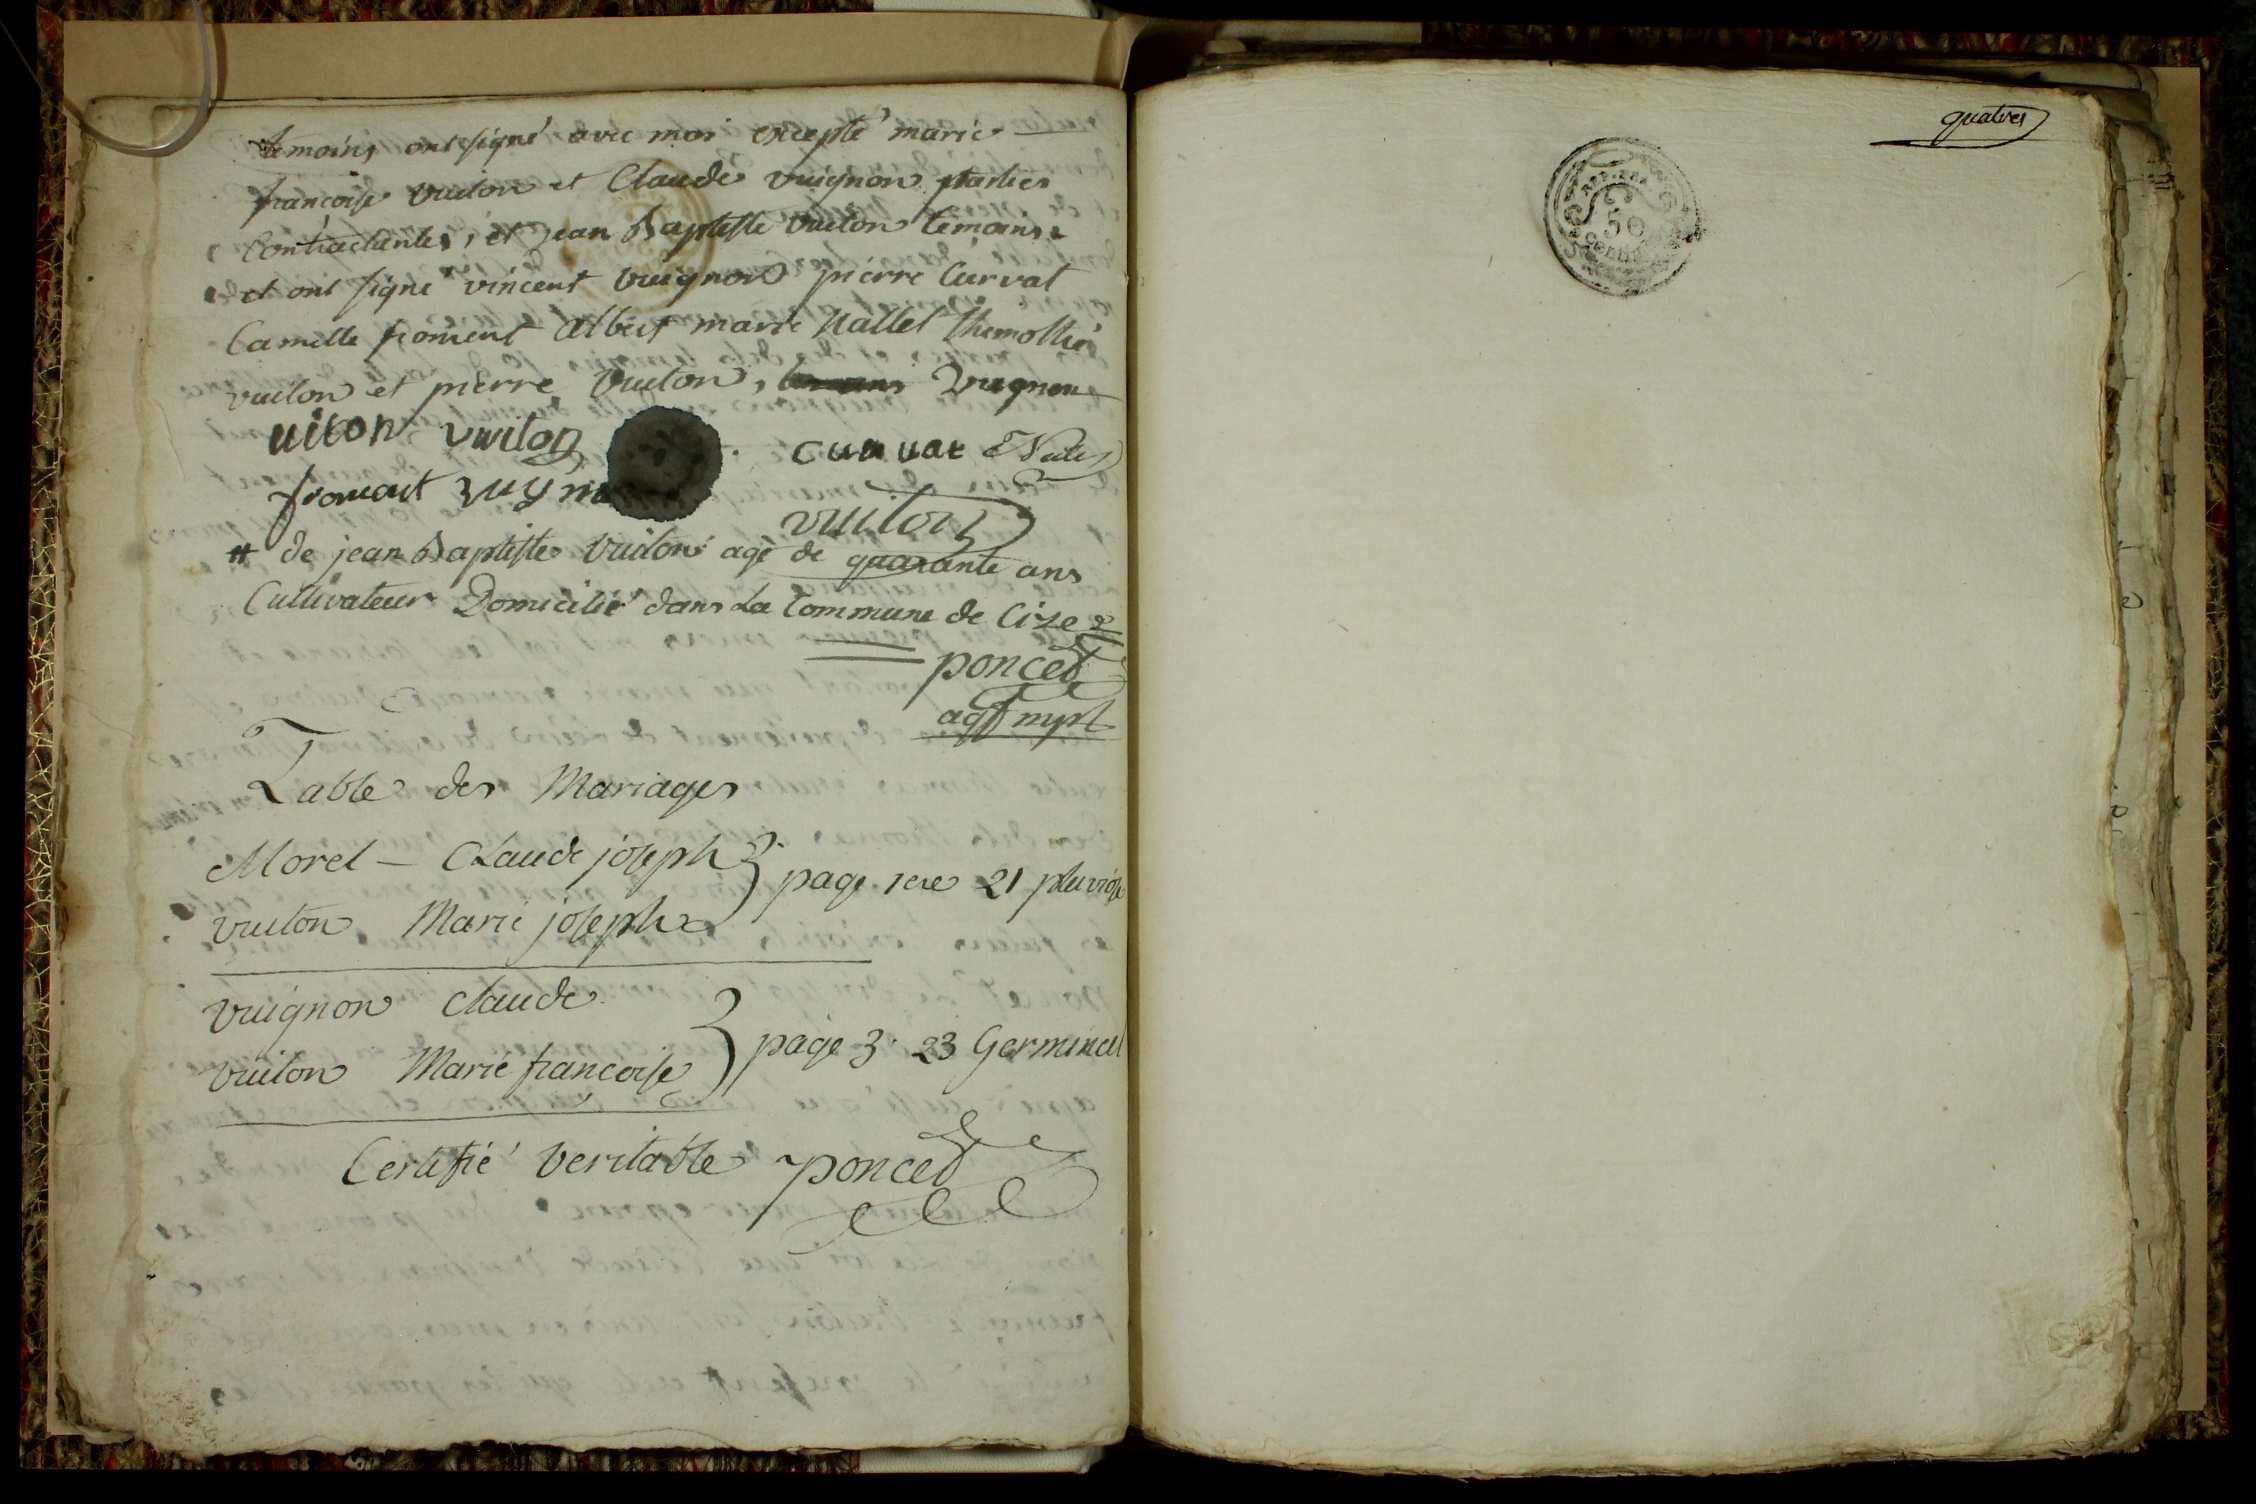 temoins ont signé avec moi excepté marie
francoise vuiton et Claude vuignon parties
Contractantes, et jean Baptiste vuiton temoins
et ont signé vincent vuignon pierre Curvat
Camille froment albert marie Nallet thimothé
vuiton et pierre vuiton, vuignon
uiton vuiton
curvat
froment vuyn
vuiton
# de jean Baptiste vuiton agé de quarante ans
Cultivateur Domicilié dans La Commune de Cize
poncet
Table des Mariages
Morel - Claude joseph
page 1ere 21 pluviose
vuiton Marie josephe
vuignon Claude
page 3. 23 Germinal
vuiton Marie francoise
Certifié veritable poncet
quatres
REP. FRA
50
CENT